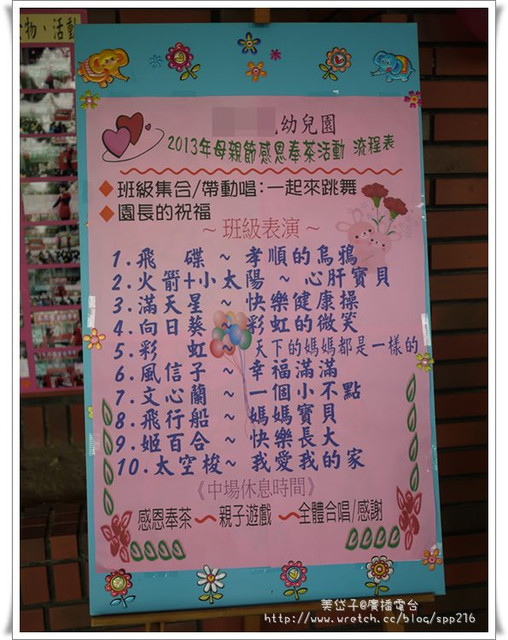 物、活動
幼兒園
2013年母親節感恩奉茶活動 流程表
班級集合/帶動唱:一起來跳舞
園長的祝福
~ 班級表演 ~
1.飛 碟 ~ 孝順的烏鴉
2.火箭+小太陽 ~ 心肝寶貝
3.滿天星 ~ 快樂健康操
4.向日葵 ~ 彩虹的微笑
5.彩 虹 ~ 天下的媽媽都是一樣的
6.風信子 ~ 幸福滿滿
7.文心蘭 ~ 一個小不點
8.飛行船 ~ 媽媽寶貝
9.姬百合 ~ 快樂長大
10.太空梭 ~ 我愛我的家
《中場休息時間》
感恩奉茶 ~ 親子遊戲 ~ 全體合唱/感謝
美岱子@廣播電台
http://www.wretch.cc/blog/spp216